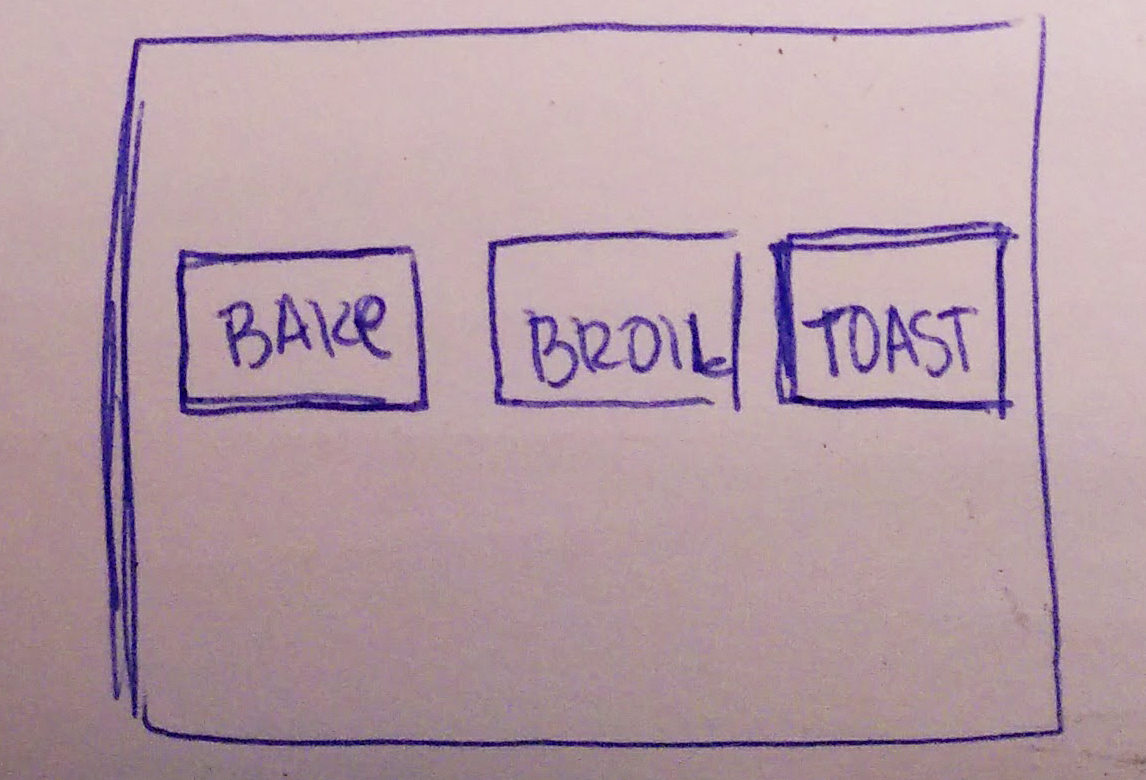 BAKe BROIL TOAST